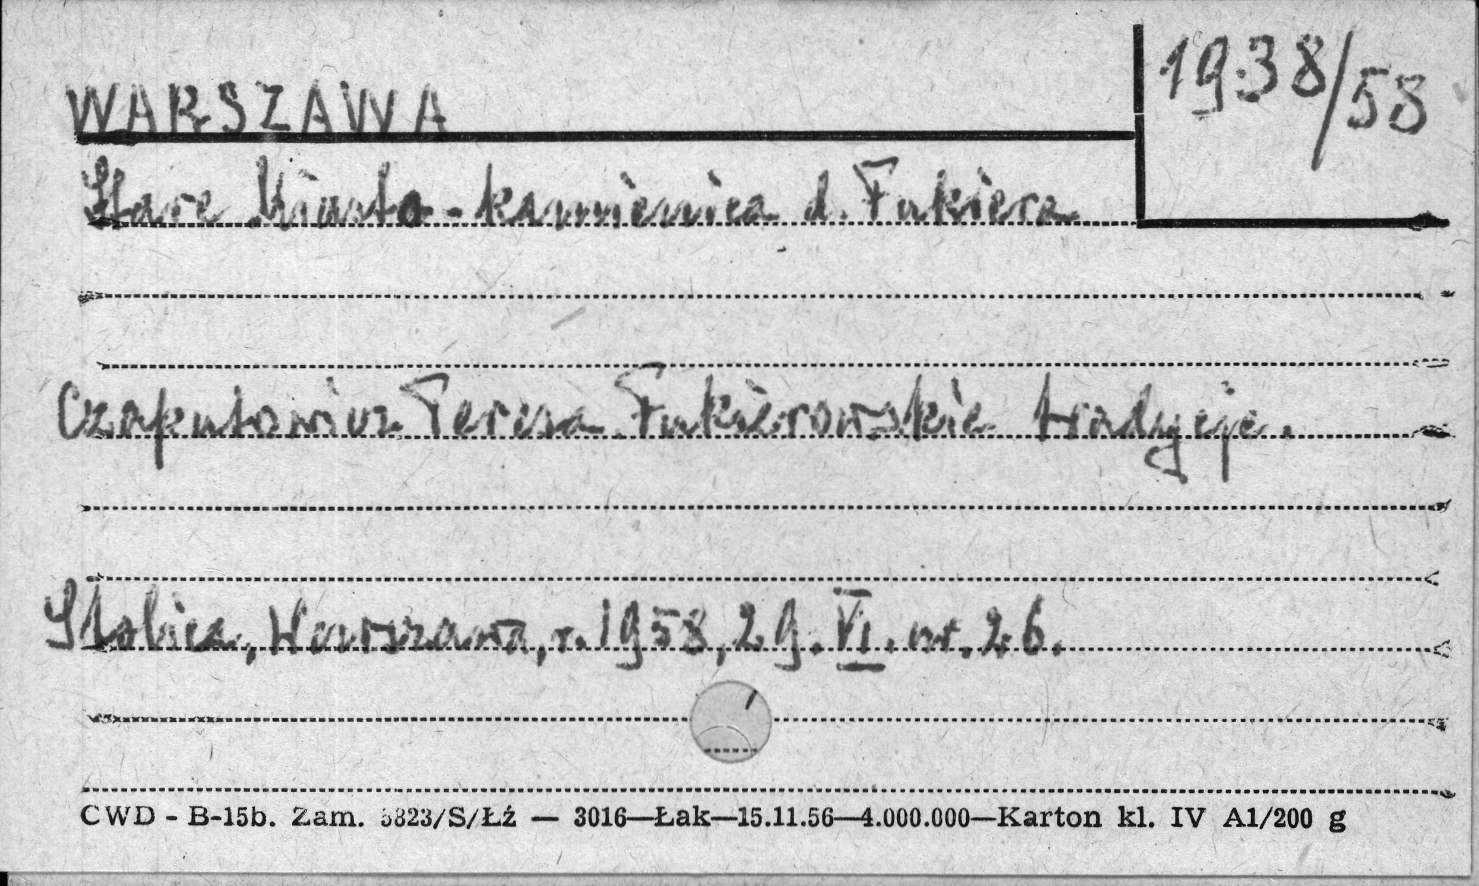 WARSZAWA
1938/58
Stare Miasto - kamienica d. Fukiera
Czaputowicz Teresa Fukierowskie tradycje.
Stolica, Warszawa, r. 1958, 29. VI. nr. 26.
CWD - B-15b. Zam. 5823/S/Łź — 3016—Łak—15.11.56—4.000.000—Karton kl. IV A1/200 g